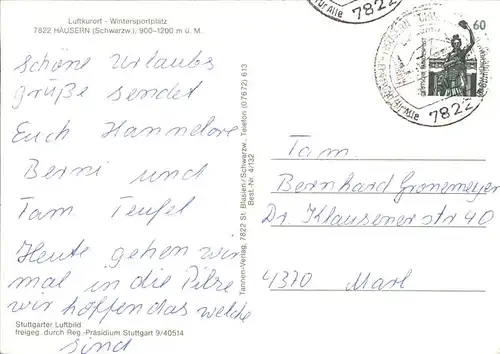 Luftkurort - Wintersportplatz
7822 HÄUSERN (Schwarzw.), 900-1200 m ü. M.
schöne Urlaubs
grüße sendet
Euch Hannelore
Berni und
Tam Teufel
Heute gehen wir
mal in die Pilze
wir hoffen das welche
sind
Stuttgarter Luftbild
freigeg. durch Reg.-Präsidium Stuttgart 9/40514
Tannen-Verlag, 7822 St. Blasien/Schwarzw., Telefon (0 76 72) 613
Best.-Nr. 4/132
für Alle
7822
60
für Alle
7822
Fam.
Bernhard Gronemeyer
Dr. Klausener str 40
4370 Marl